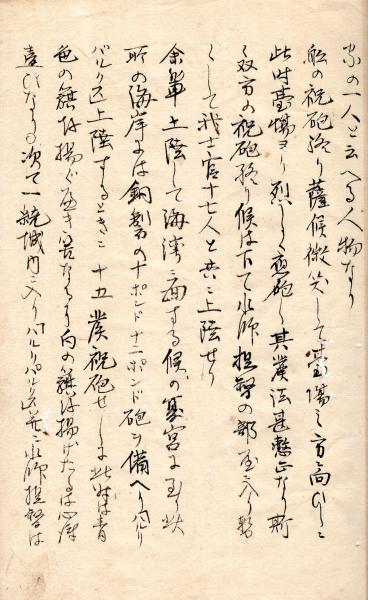 家の一人と云へる人物なり
船の祝砲終り薩候微笑して臺場之方高ひしに
此時臺場ヨリ烈しく應砲し其業法甚整正なり斯
く双方の祝砲終り候は下て水師提督の部屋に入り暫
くして我士官十七人と共に上陸せり
余輩上陸して海湾に面する候の夏宮に至り此
所の海岸には銅製の十ポンド十二ポンド砲ヲ備へりハルリ
バルクス上陸するときに十五発祝砲せしに此時は青
色の籏を揚ぐべき筈なるを白の籏を揚げたるは心
喜ひなる次て一統城内に入りハルリハルクス并に水師提督は